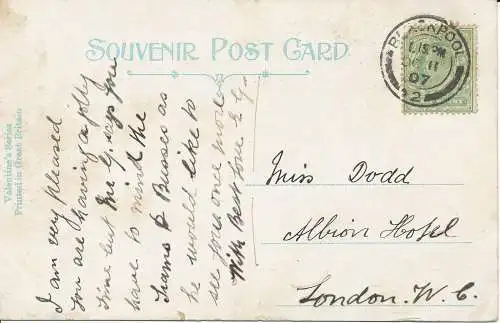 SOUVENIR POST CARD
BLACKPOOL
1.15 PM
11
07
22
Valentine's Series
Printed in Great Britain
I am very pleased
you are having a jolly
time but Mr G. says you
have to mind the
Trams & Busses as
he would like to
see you once more
With best love E G
Miss Dodd
Albion Hotel
London. W. C.